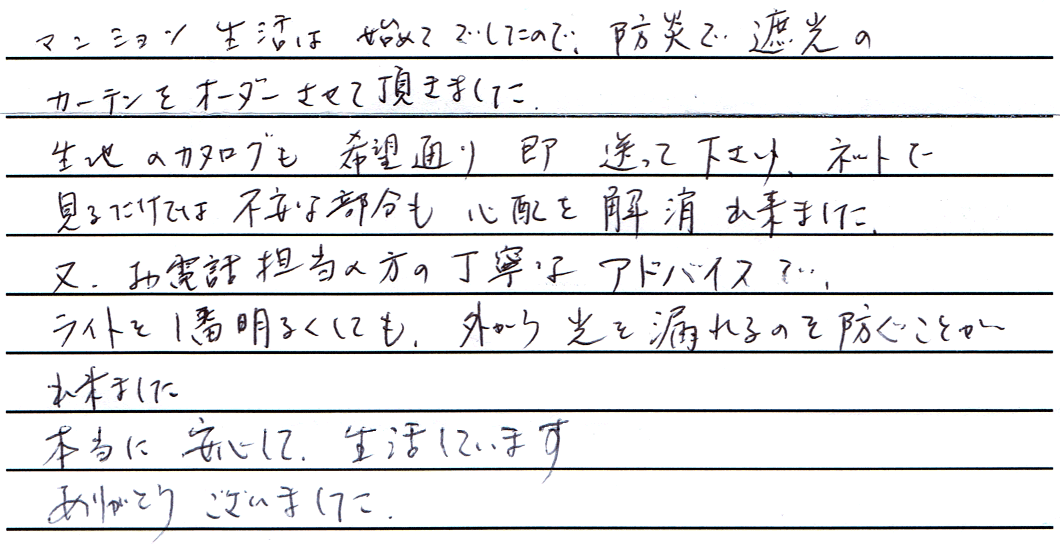 マンション生活は始めてでしたので、防炎で遮光の
カーテンをオーダーさせて頂きました。
生地のカタログも希望通り即送って下さり、ネットで
見るだけでは不安な部分も心配を解消出来ました。
又、お電話担当の方の丁寧なアドバイスで、
ライトを1番明るくしても、外から光を漏れるのを防ぐことが
出来ました
本当に安心して、生活しています
ありがとうございました。